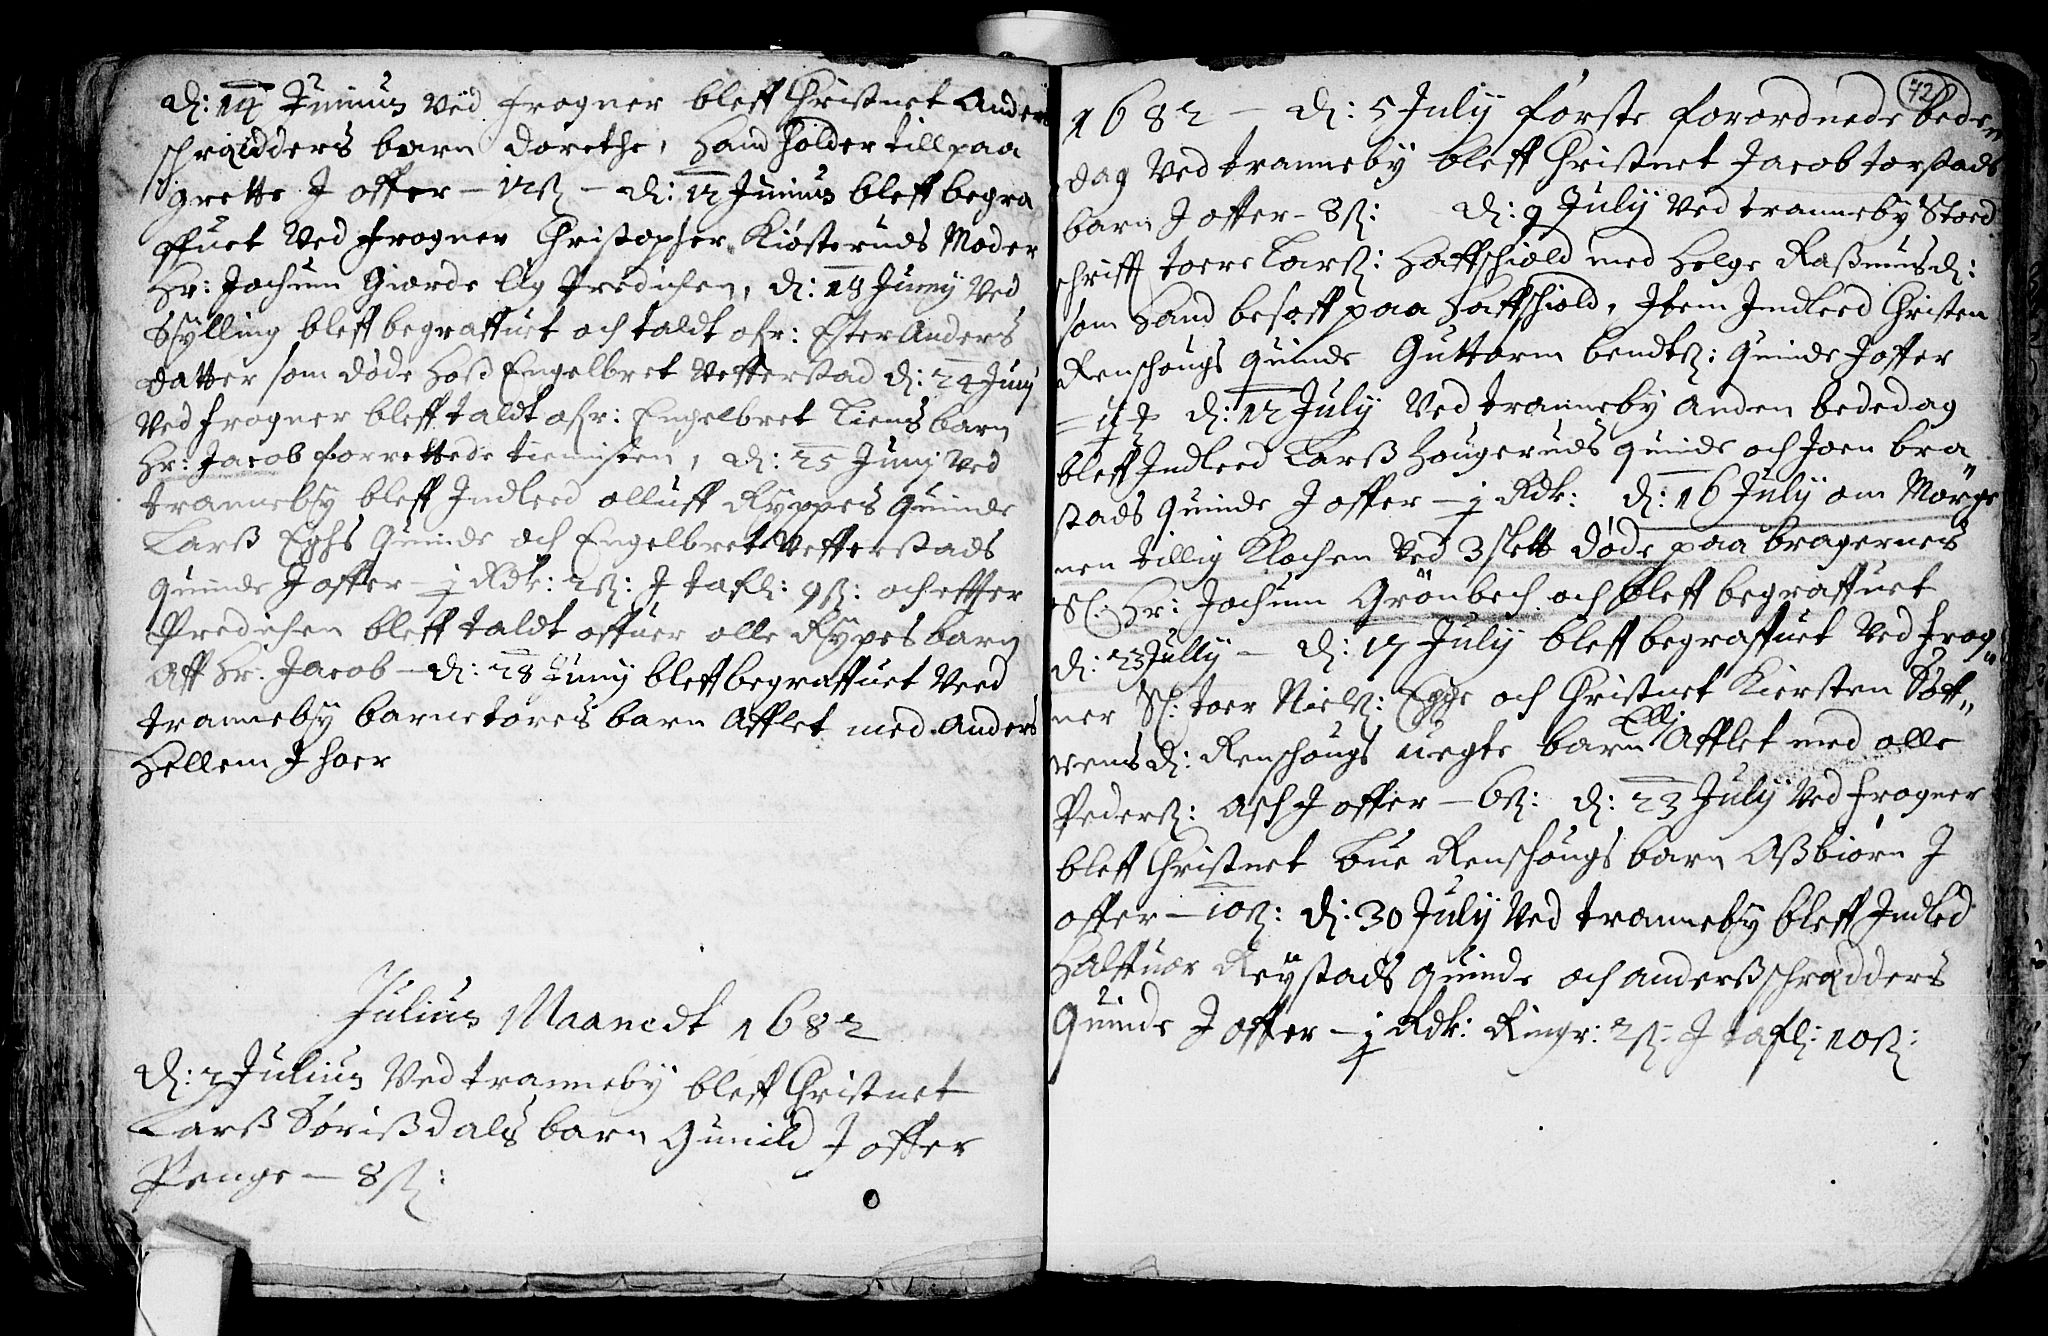 d: 14 Junius Ved frogner bleff Christnet Anders
schrædders barn dorethe, hand holder till paa
grette J offer - 12ß - d: 12 Junius bleff begra
ffuet Ved frogner Christopher Kiøsteruds Moder
Hr: Jochum giorde lig Predichen, d: 18 Junij Ved
Sylling bleff begraffuet och taldt ofr: Ester Anders
datter som døde hoß Engelbret Vefferstad d: 24 Junij
Ved frogner bleff taldt ofr: Engelbret Liens barn
Hr: Jacob forrettede tienisten, d: 25 Junij Ved
tranneby bleff Indleed olluff Ryppes Quinde
Larß Eghs Quinde och Engelbret Vefferstads
Quinde J offer - j Rdr: 2ß: J tafl: 9ß: och effter
Predichen bleff taldt offuer olle Rypes barn
Aff Hr: Jacob - d: 28 Junij bleff begraffuet Veed
tranneby barnetøres barn Afflet med Anders
Hellem J hoer
Julius Maanedt 1682
d: 2 Julius Ved tranneby bleff Christnet
Larß Sørißdals barn Gunild J offer
Penge - 8ß:
72
1682 - d: 5 July første forordnede bede"
dag Ved tranneby bleff Christnet Jacob torstads
barn J offer - 8ß: d: 9 July Ved tranneby Stoed
schrifft toere Larß: Haffschiold med Helge Raßmusd:
som hand besoff paa Haffschiold, Item Indleed Christen
Renschougs Quinde Guttorm bendtß: Quinde J offer
d: 12 July Ved tranneby anden bededag
bleff Indleed Larß Hougeruds Quinde och Joen bra"
stads Quinde J offer - j Rdr: d: 16 July om Morge
nen tillig Klochen Ved 3 slett døde paa bragernes
Sl: Hr: Jochum Grönbech och bleff begraffuet
d: 23 Jully - d: 17 July bleff begraffuet Ved frog"
ner Sl: toer Nielß: Egge och Christnet Kiersten Søff"
rensd: Renschougs uegte barn Elli Afflet med olle
Pederß: Ash J offer - 6ß: d: 23 July Ved frogner
bleff Christnet Lue Renschougs barn Aßbiørn J
offer - 10ß: d: 30 July Ved tranneby bleff Indled
Halffuor Reystads Quinde och anderß schrædders
Quinde J offer - j Rdr: Ringr: 2ß: J tafl: 10ß: